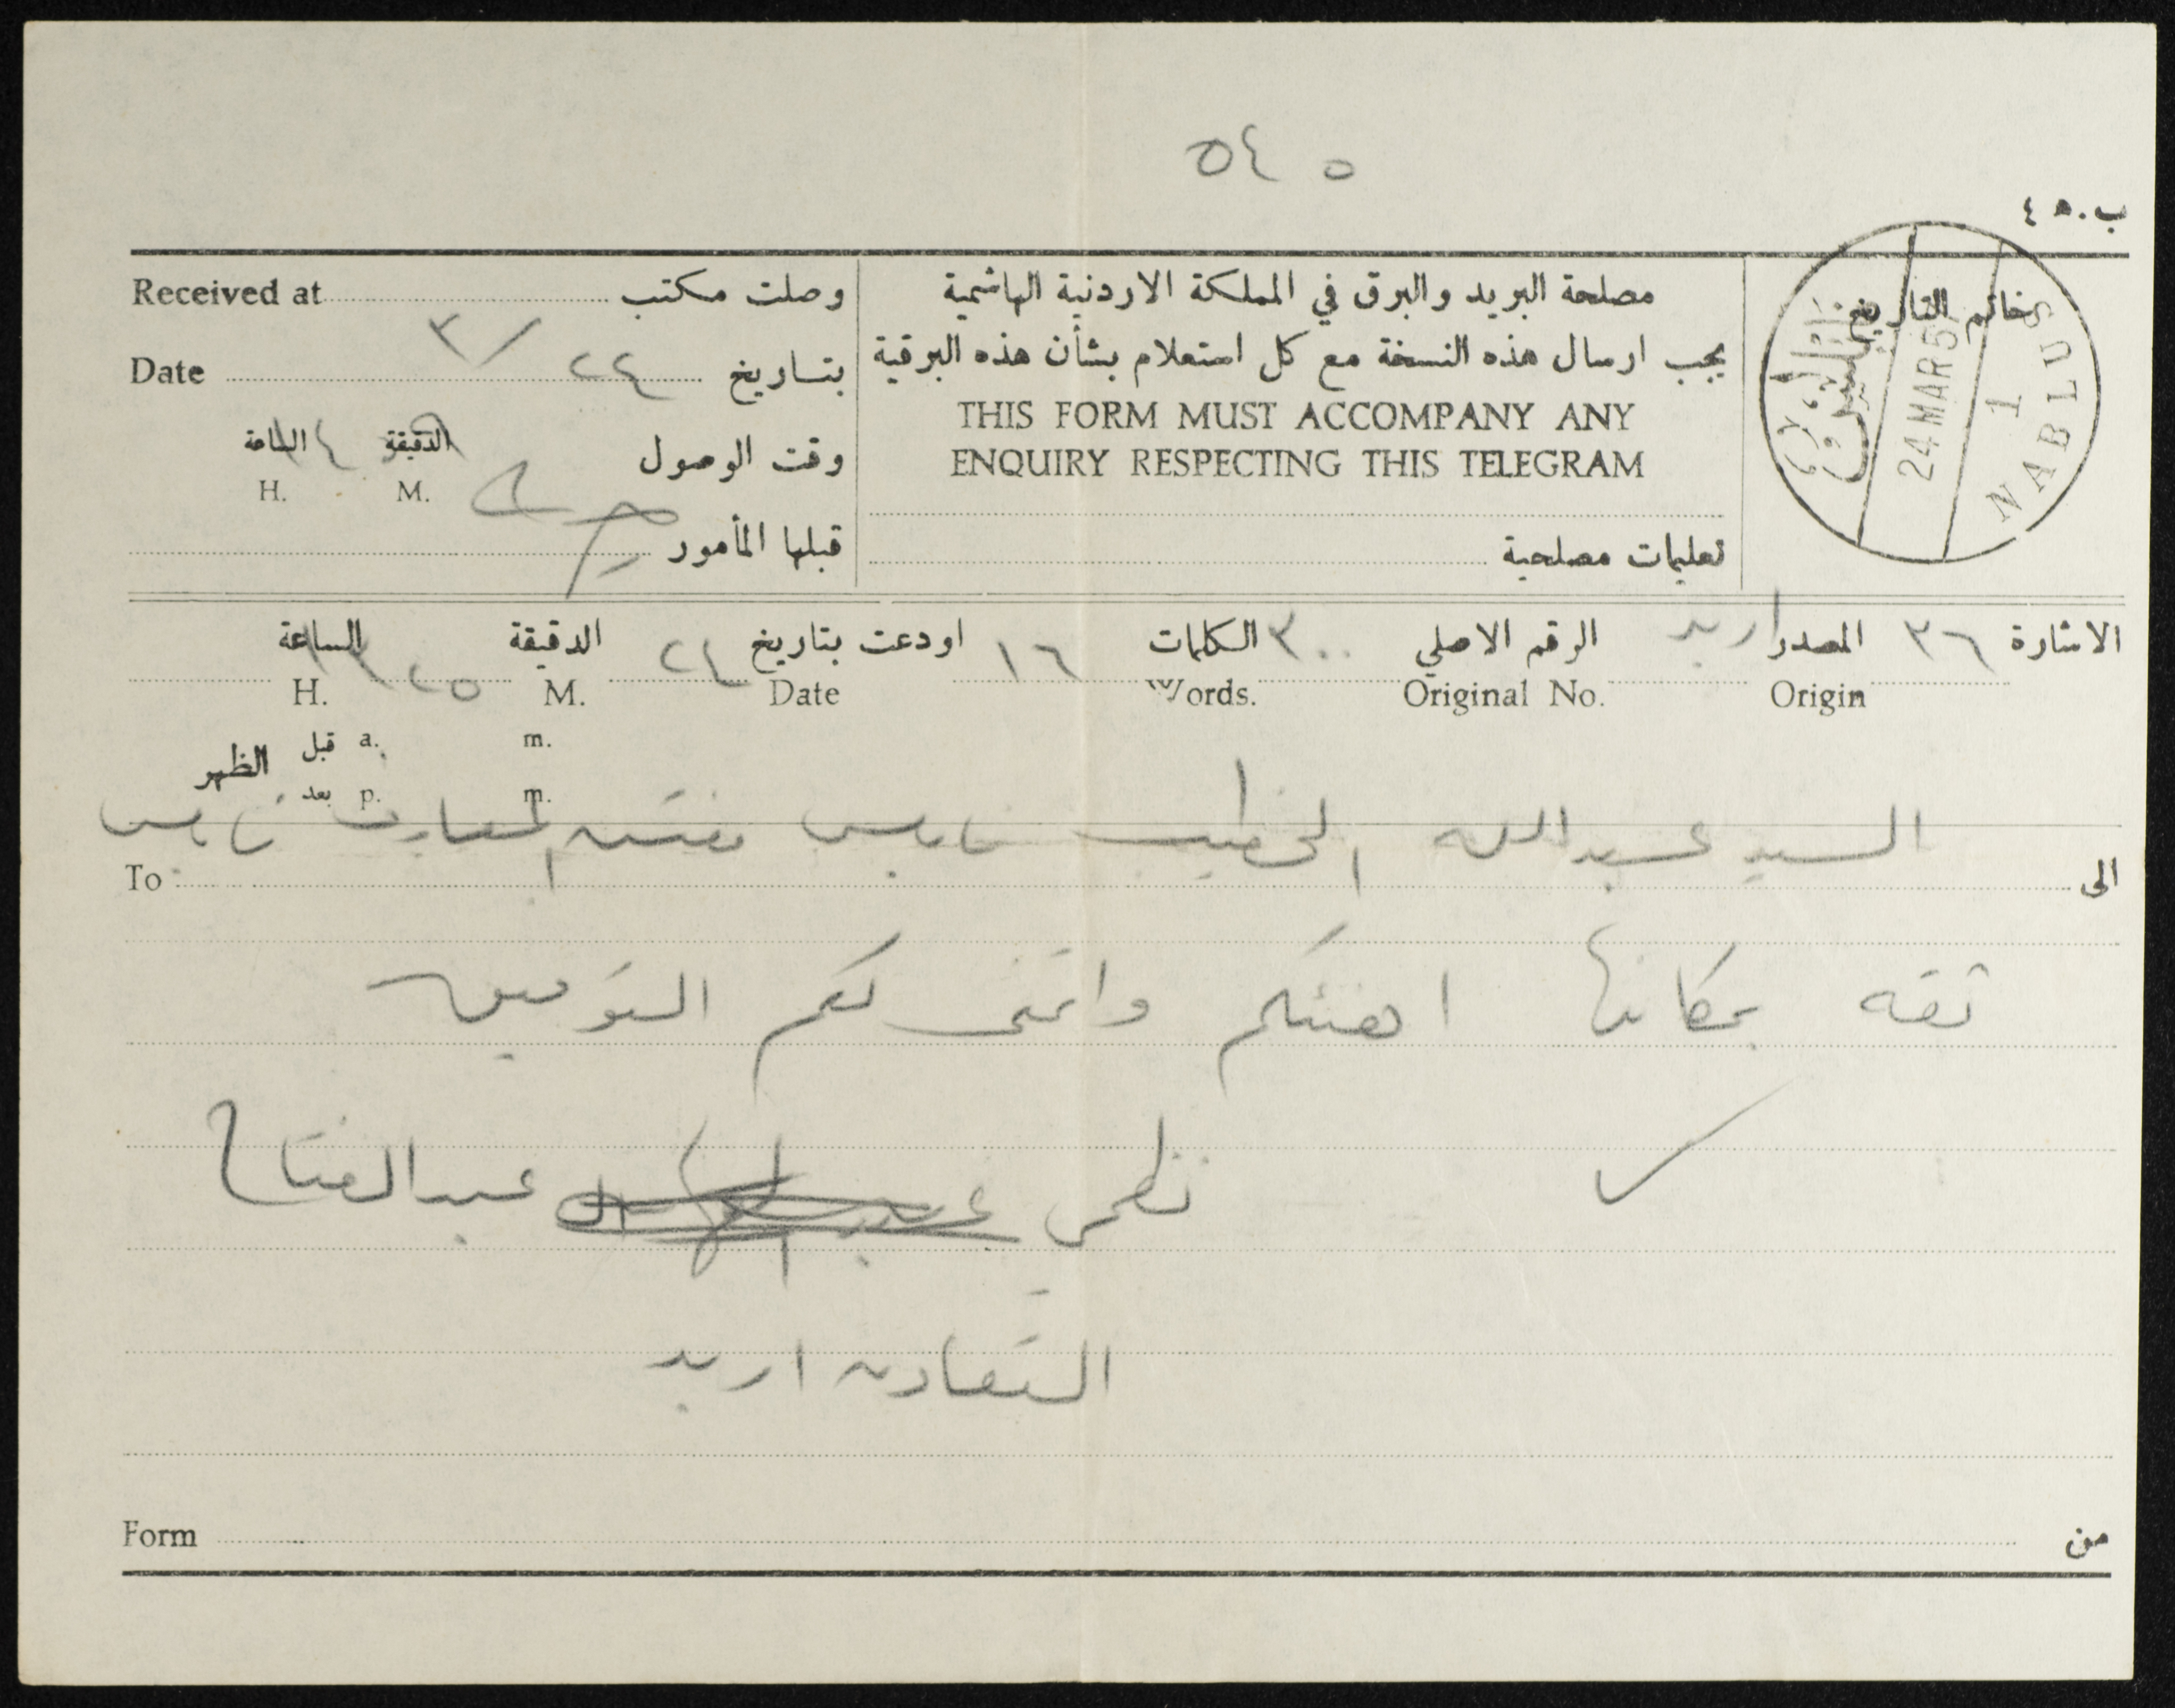 ٥٤٥
ب.٤٥
Received at وصلت مكتب
مصلحة البريد والبرق في المملكة الاردنية الهاشمية
خاتم التاريخ
24 MAR 5
1
NABLUS
Date ٢٤/٣ بتاريخ
يجب ارسال هذه النسخة مع كل استعلام بشأن هذه البرقية
THIS FORM MUST ACCOMPANY ANY
ENQUIRY RESPECTING THIS TELEGRAM
وقت الوصول الدقيقة الساعة
H. M.
قبلها المأمور
تعليمات مصلحية
الاشارة ٣٦ المصدر اربد الرقم الاصلي ٣٠٠ الكلمات ١٦ اودعت بتاريخ ٢٤ الدقيقة ٢٥ الساعة
H. M. Date Words. Original No. Origin
قبل a. m.
الظهر
بعد p. m.
السيد عبدالله الخطيب نابلس مفتش المعارف نابلس
To الى
ثقه بمكانها اهنئكم واتمنى لكم التوفيق
نظمي عبد الفتاح
التعاون اربد
Form من